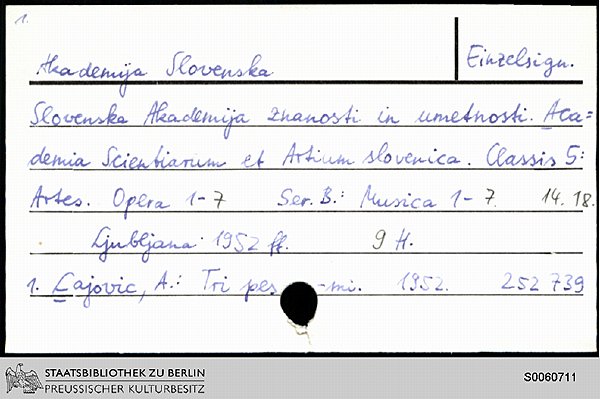 1.
Akademija Slovenska
Einzelsign.
Slovenska Akademija znanosti in umetnosti. Aca=
demia Scientiarum et Artium slovenica. Classis 5:
Artes. Opera 1-7 Ser. B.: Musica 1-7. 14.18.
Ljubljana: 1952 ff. 9 H.
1. Lajovic, A.: Tri pes -mi. 1952. 252 739
STAATSBIBLIOTHEK ZU BERLIN
PREUSSISCHER KULTURBESITZ
S0060711